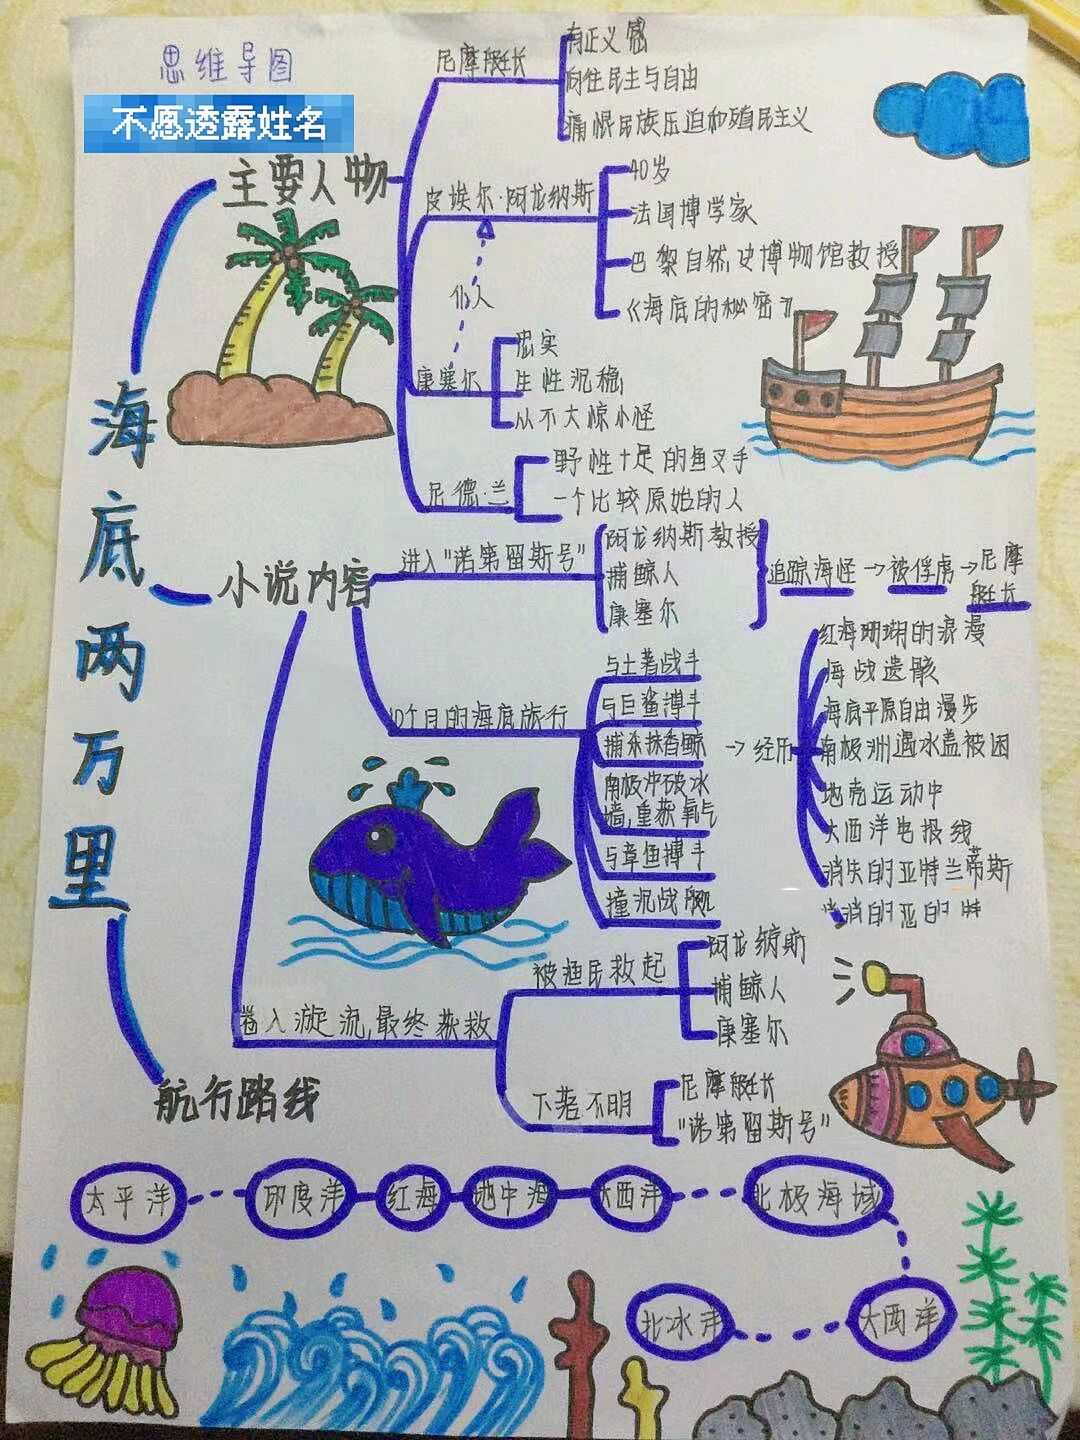 思维导图
不愿透露姓名
海底两万里
主要人物
尼摩艇长
有正义感
向往民主与自由
痛恨民族压迫和殖民主义
皮埃尔·阿龙纳斯
40岁
法国博学家
巴黎自然史博物馆教授
《海底的秘密》
仆人
康塞尔
忠实
生性沉稳
从不大惊小怪
尼德·兰
野性十足的鱼叉手
一个比较原始的人
小说内容
进入"诺第留斯号"
阿龙纳斯教授
捕鲸人
康塞尔
追踪海怪→被俘虏→尼摩
艇长
10个月的海底旅行
与土著战斗
与巨鲨搏斗
捕杀抹香鲸
南极冲破冰
墙,重获氧气
与章鱼搏斗
撞沉战舰
→经历
红海珊瑚的浪漫
海战遗骸
海底平原自由漫步
南极洲遇冰盖被困
地壳运动中
大西洋电报线
消失的亚特兰蒂斯
卷入漩流,最终获救
被渔民救起
阿龙纳斯
捕鲸人
康塞尔
下落不明
尼摩艇长
"诺第留斯号"
航行路线
太平洋
印度洋
红海
地中海
大西洋
北极海域
大西洋
北冰洋